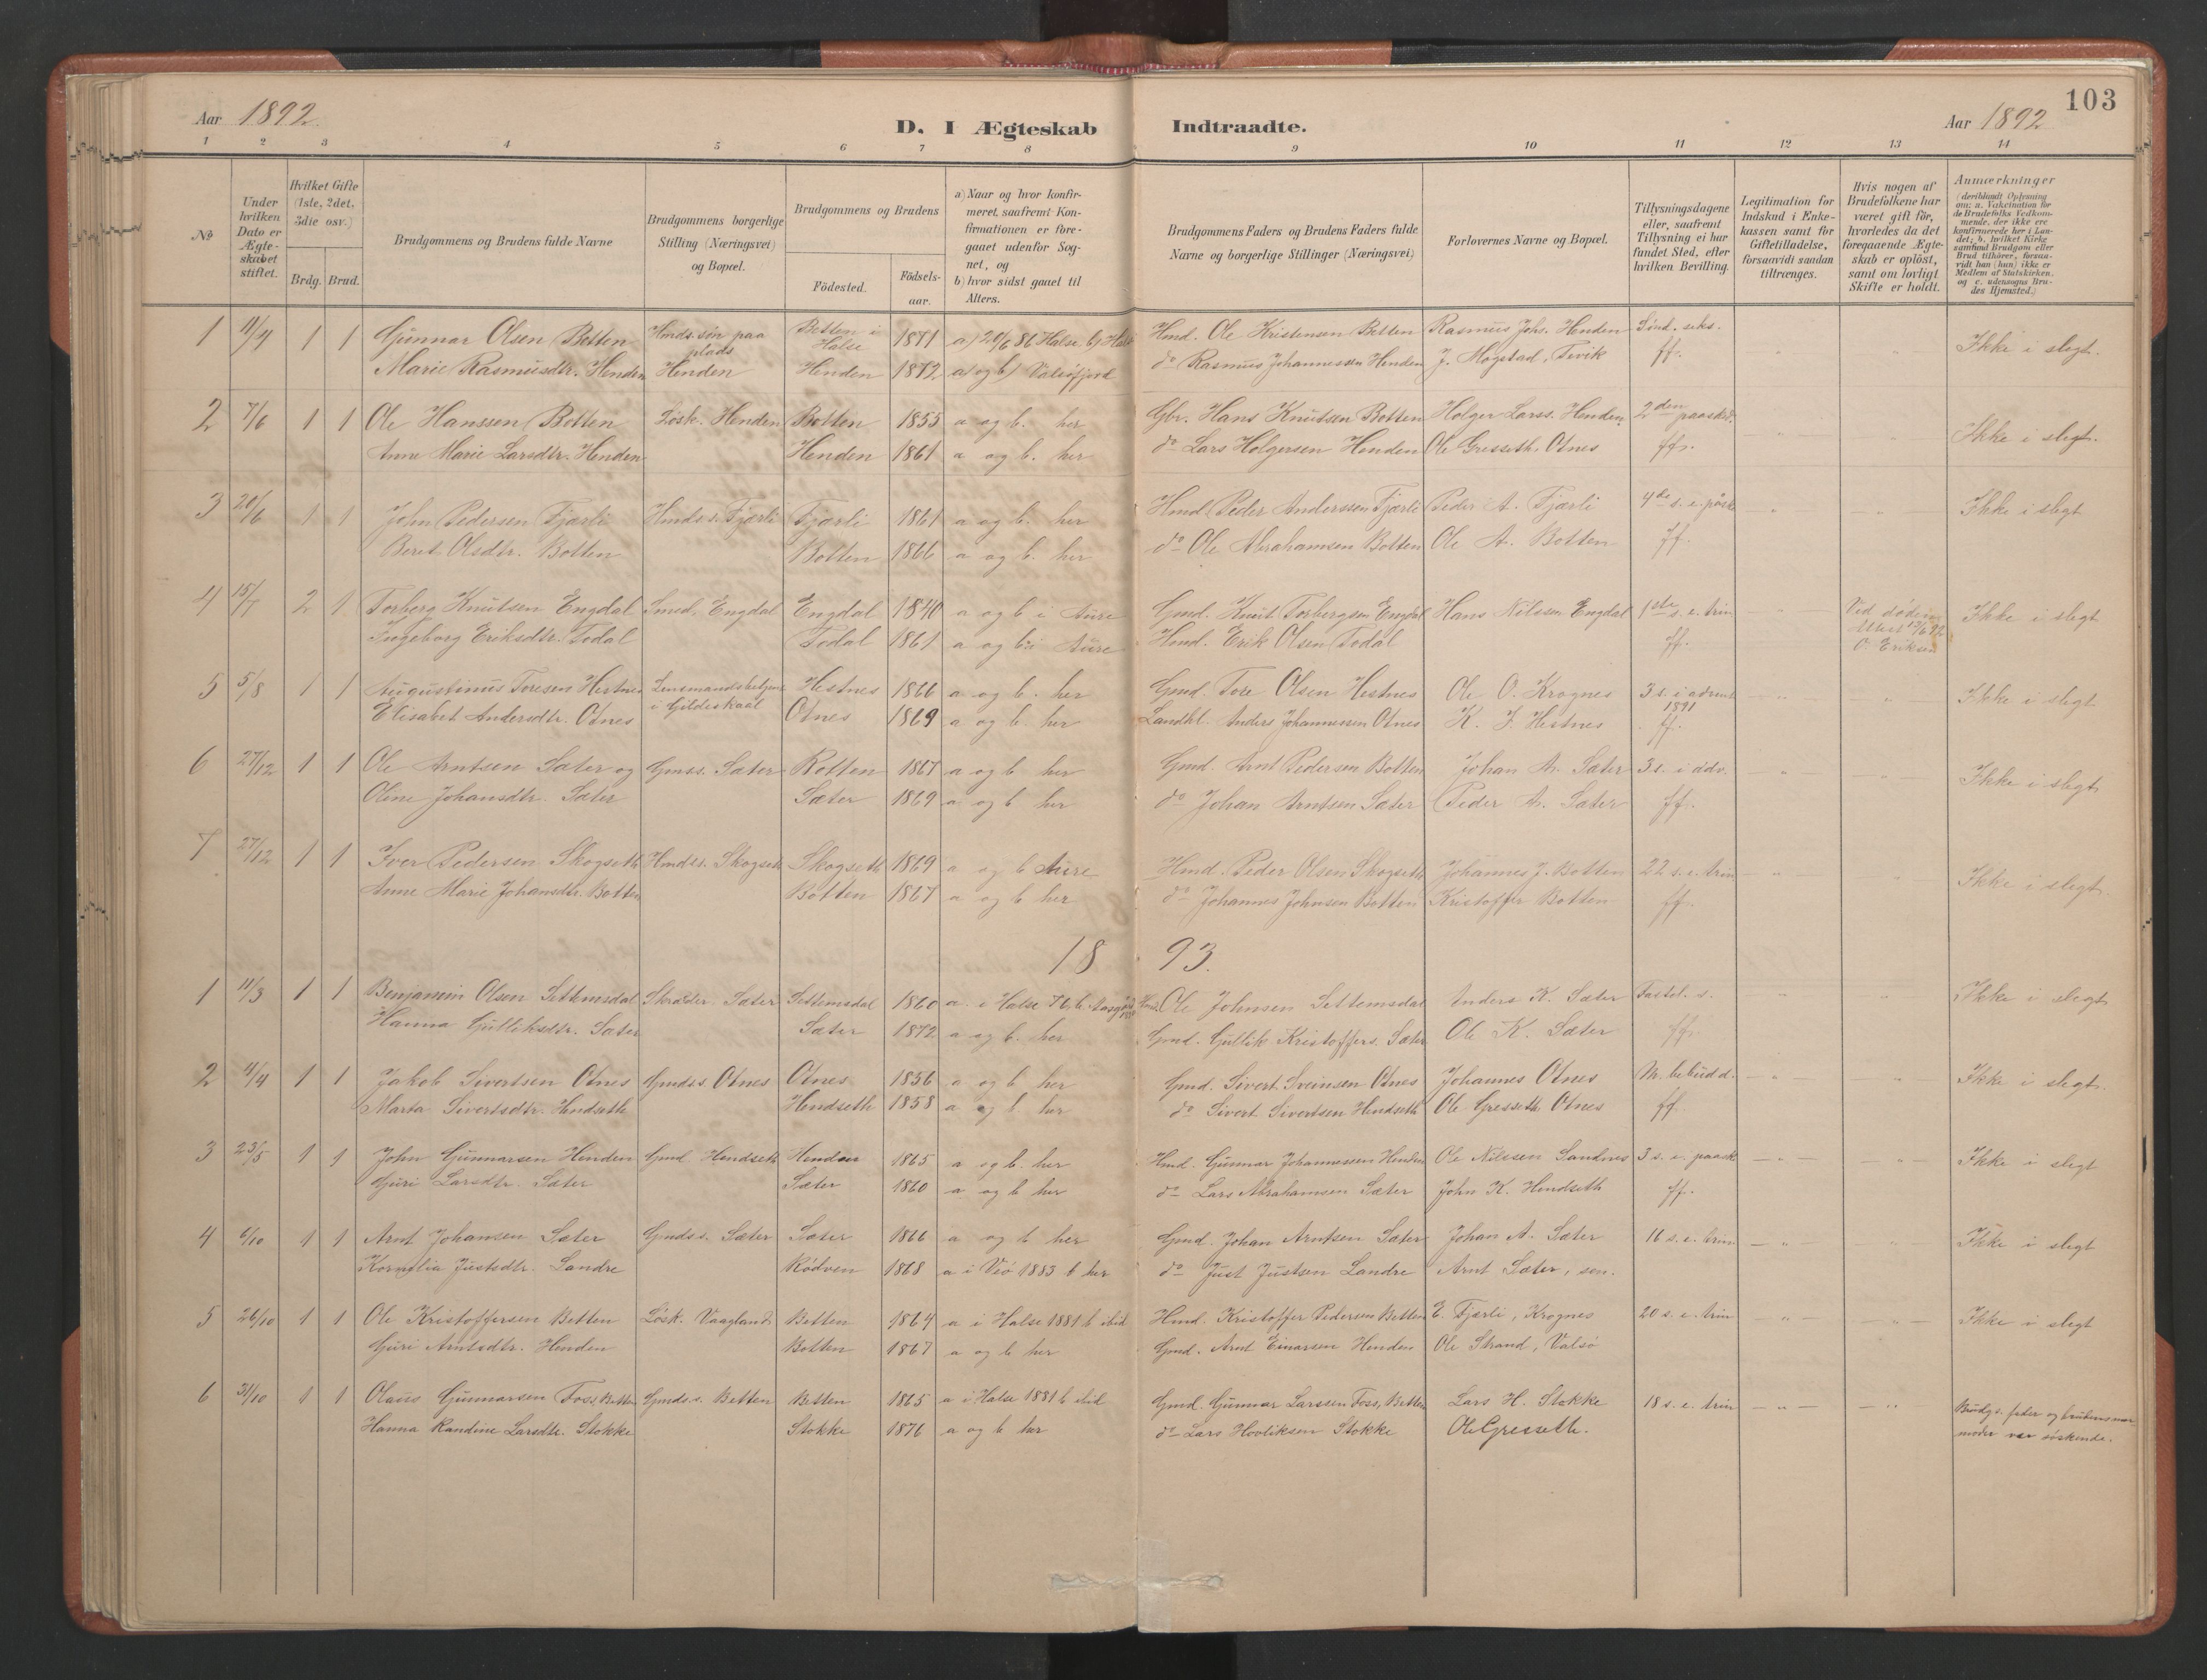 103
Aar 1892.
D. I Ægteskab Indtraadte.
Aar 1892
1 2 3 4 5 6 7 8 9 10 11 12 13 14
No
Under hvilken Dato er Ægte-skabet stiftet.
Hvilket Gifte (1ste, 2det, 3die osv.)
Brdg. Brud.
Brudgommens og Brudens fulde Navne
Brudgommens borgerlige Stilling (Næringsvei) og Bopæl.
Brudgommens og Brudens
Födested.
Födsels-aar.
a) Naar og hvor konfir-meret, saafremt Kon-firmationen er fore-gaaet udenfor Sog-net, og
b) hvor sidst gaaet til Alters.
Brudgommens Faders og Brudens Faders fulde Navne og borgerlige Stillinger (Næringsvei)
Forlovernes Navne og Bopæl.
Tillysningsdagene eller, saafremt Tillysning ei har fundet Sted, efter hvilken Bevilling.
Legitimation for Indskud i Enke-kassen samt for Giftetilladelse, forsaavidt saadan tiltrænges.
Hvis nogen af Brudefolkene har været gift för, hvorledes da det foregaaende Ægte-skab er oplöst, samt om lovligt Skifte er holdt.
Anmærkninger
(deriblandt Oplysning om: a. Vakcination for de Brudefolks Vedkom-mende, der ikke ere konfirmerede her i Lan-det; b. hvilket Kirke-samfund Brudgom eller Brud tilhörer, forsaa-vidt han (hun) ikke er Medlem af Statskirken, og c. udensogns Bru-des Hjemsted.)
1 11/4 1 1 Gunnar Olsen Betten Hmds. søn paa plads Betten i Halse 1871 a) 20/6 86 Halse b) Halse Hmd. Ole Kristensen Betten Rasmus Johs. Henden Sind. seks. Ikke i slegt.
Marie Rasmusdtr. Henden Henden Henden 1872 a) og b) Valsøfjord do Rasmus Johannessen Henden J. Mogstad, Tevik ff.
2 7/6 1 1 Ole Hanssen Botten Løsk. Henden Botten 1855 a og b. her Gbr. Hans Knutsen Botten Holger Larss. Henden 2den paasked. Ikke i slegt.
Anne Marie Larsdtr. Henden Henden 1861 a og b. her do Lars Holgersen Henden Ole Gresseth, Otnes ff.
3 20/6 1 1 John Pedersen Fjærli Hmds s. Fjærli Fjærli 1861 a og b. her Hmd Peder Anderssen Fjærli Peder A. Fjærli 4de s. e. påsk Ikke i slegt
Beret Olsdtr. Botten Botten 1866 a og b. her do Ole Abrahamsen Botten Ole A. Botten ff.
4 15/7 2 1 Torberg Knutsen Engdal Smed. Engdal Engdal 1840 a og b i Aure Gmd. Knut Torbergsen Engdal Hans Nilssen Engdal 1ste s. e. trin Ved døden Ikke i slegt
Ingeborg Eriksdtr. Todal Todal 1861 a og b i Aure Hmd. Erik Olsen Todal ff. Attest 13/6 92 O. Eriksen
5 5/8 1 1 Augustinus Toresen Hestnes Lensmandsbetjent i Gildeskaal Hestnes 1866 a og b. her Gmd. Tore Olsen Hestnes Ole O. Krognes 3 s. i advent 1891 Ikke i slegt
Elisabet Andersdtr. Otnes Otnes 1869 a og b. her Landhl. Anders Johannessen Otnes K. J. Hestnes ff.
6 27/12 1 1 Ole Arntsen Sæter og Gmss. Sæter Botten 1867 a og b her Gmd. Arnt Pedersen Botten Johan A. Sæter 3 s. i adv. Ikke i slegt
Oline Johansdtr. Sæter Sæter 1869 a og b her do Johan Arntsen Sæter Peder A. Sæter ff.
7 27/12 1 1 Iver Pedersen Skogseth Hmds s. Skogseth Skogseth 1869 a og b Aure Hmd. Peder Olsen Skogseth Johannes J. Botten 22 s. e. trin Ikke i slegt.
Anne Marie Johansdtr. Botten Botten 1867 a og b her do Johannes Johnsen Botten Kristoffer Botten ff.
1893.
1 11/3 1 1 Benjamin Olsen Settemsdal Skræder. Sæter Settemsdal 1860 a. i Halse 76, b. Hmd. Ole Johnsen Settemsdal Anders K. Sæter Fastel. s. Ikke i slegt
Hanna Gulliksdtr. Sæter Sæter 1872 a og b. her Gmd. Gullik Kristoffers. Sæter Ole K. Sæter ff.
2 4/4 1 1 Jakob Sivertsen Otnes Gmds s Otnes Otnes 1856 a og b her Gmd. Sivert Sveinsen Otnes Johannes Otnes M. bebudd. Ikke i slegt.
Marta Sivertsdtr. Hendseth Hendseth 1858 a og b her do Sivert Sivertsen Hendseth Ole Gresseth Otnes ff.
3 23/5 1 1 John Gunnarsen Henden Gmd Hendseth Henden 1865 a og b. her Hmd. Gunnar Johannessen Henden Ole Nilssen Sandnes 3 s. e. paask Ikke i slegt
Guri Larsdtr. Sæter Sæter 1860 a og b her do Lars Abrahamsen Sæter John K. Hendseth ff.
4 6/10 1 1 Arnt Johansen Sæter Gmds s. Sæter Sæter 1866 a og b her Gmd. Johan Arntsen Sæter Johan A. Sæter 16 s. e. trin Ikke i slegt
Kornelia Justsdtr. Landre Rødven 1868 a i Veø 1883 b her do Just Justsen Landre Arnt Sæter, sen.
5 26/10 1 1 Ole Kristoffersen Betten Løsk. Vaagland Betten 1864 a i Halse 1881 b ibid Hmd. Kristoffer Pedersen Betten E. Fjærli, Krognes 20 s. e. trin Ikke i slegt
Guri Arntsdtr. Henden Botten 1867 a og b her Gmd. Arnt Einarsen Henden Ole Strand, Valsø
6 31/10 1 1 Olaus Gunnarsen Foss, Betten Gmds s. Betten Betten 1865 a i Halse 1881 b ibid Gmd. Gunnar Larssen Foss, Betten Lars H. Stokke 18 s. e. trin Brudgs. fader og brudens mor
Hanna Randine Larsdtr. Stokke Stokke 1876 a og b her do Lars Hovliksen Stokke Ole Gresseth. moder var søskende.